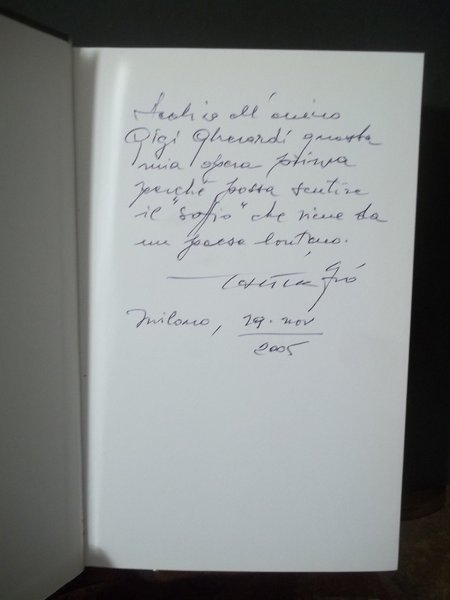 Dedico all'amico
Gigi Gherardi questa
mia opera prima
perché possa sentire
il "soffio" che viene da
un paese lontano.
Milano, 29. nov
2005